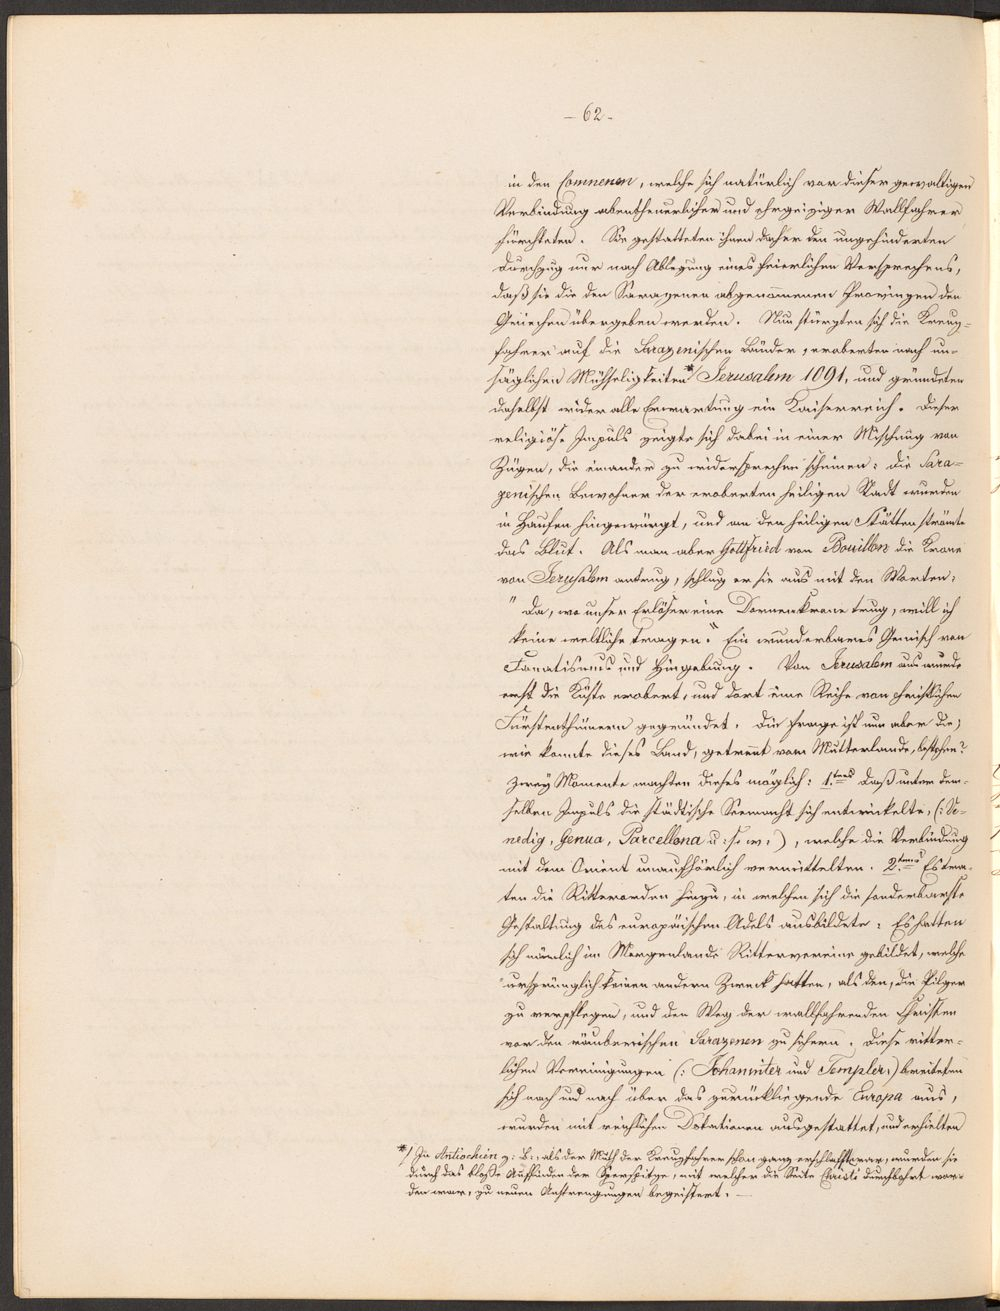 - 62 -
in den Comnenen, welche sich natürlich vor dieser gewaltigen
Verbindung abentheuerlicher und ehrgeiziger Wallfahrer
fürchteten. Sie gestatteten ihnen daher den ungehinderten
Durchzug nur nach Ablegung eines feierlichen Versprechens,
daß sie die den Sarazenen abgenom̅enen Provinzen den
Griechen übergeben werden. Nun stürzten sich die Kreuz-
fahrer auf die Sarazenischen Länder, eroberten nach un-
säglichen Mühseligkeiten*/ Jerusalem 1091, und gründeten
daselbst wider alle Erwartung ein Kaiserreich. Dieser
religiöse Impuls zeigte sich dabei in einer Mischung von
Zügen, die einander zu widersprechen scheinen: die Sara-
zenischen Bewohner der eroberten heiligen Stadt wurden
in Haufen hingewürgt, und an den heiligen Stätten strömte
das Blut. Als man aber Gottfried von Bouillon die Krone
von Jerusalem antrug, schlug er sie aus mit den Worten:
"Da, wo unser Erlöser eine Dornenkrone trug, will ich
keine weltliche tragen." Ein wunderbares Gemisch von
Fanatismus und Hingebung. Von Jerusalem aus wurde
erst die Küste erobert, und dort eine Reihe von christlichen
Fürstenthümern gegründet. Die Frage ist nun aber die;
wie konnte dieses Land, getreñt vom Mutterlande, bestehen?
Zwey Momente machten dieses möglich: 1.tens Daß unter dem-
selben Impuls die städtische Seemacht sich entwickelte, (: Ve-
nedig, Genua, Parcellona u: s. w:), welche die Verbindung
mit dem Orient unaufhörlich vermittelten. 2.tens Es tra-
ten die Ritterorden hinzu, in welchen sich die sonderbarste
Gestaltung des europäischen Adels ausbildete: Es hatten
sich nämlich im Morgenlande Rittervereine gebildet, welche
ursprünglich keinen andern Zweck hatten, als den, die Pilger
zu verpflegen, und den Weg der wallfahrenden Christen
vor den räuberischen Sarazenen zu sichern. Diese ritter-
lichen Vereinigungen (: Johanniter und Templer:) breiteten
sich nach und nach über das zurückliegende Europa aus,
wurden mit reichlichen Dotationen ausgestattet, und erhielten
*/ In Antiochien z: B:, als der Muth der Kreuzfahrer schon ganz erschlafft war, wurden sie
durch das bloße Auffinden der Speerspitze, mit welcher die Seite Christi durchbohrt wor-
den war, zu neuen Anstrengungen begeistert. —